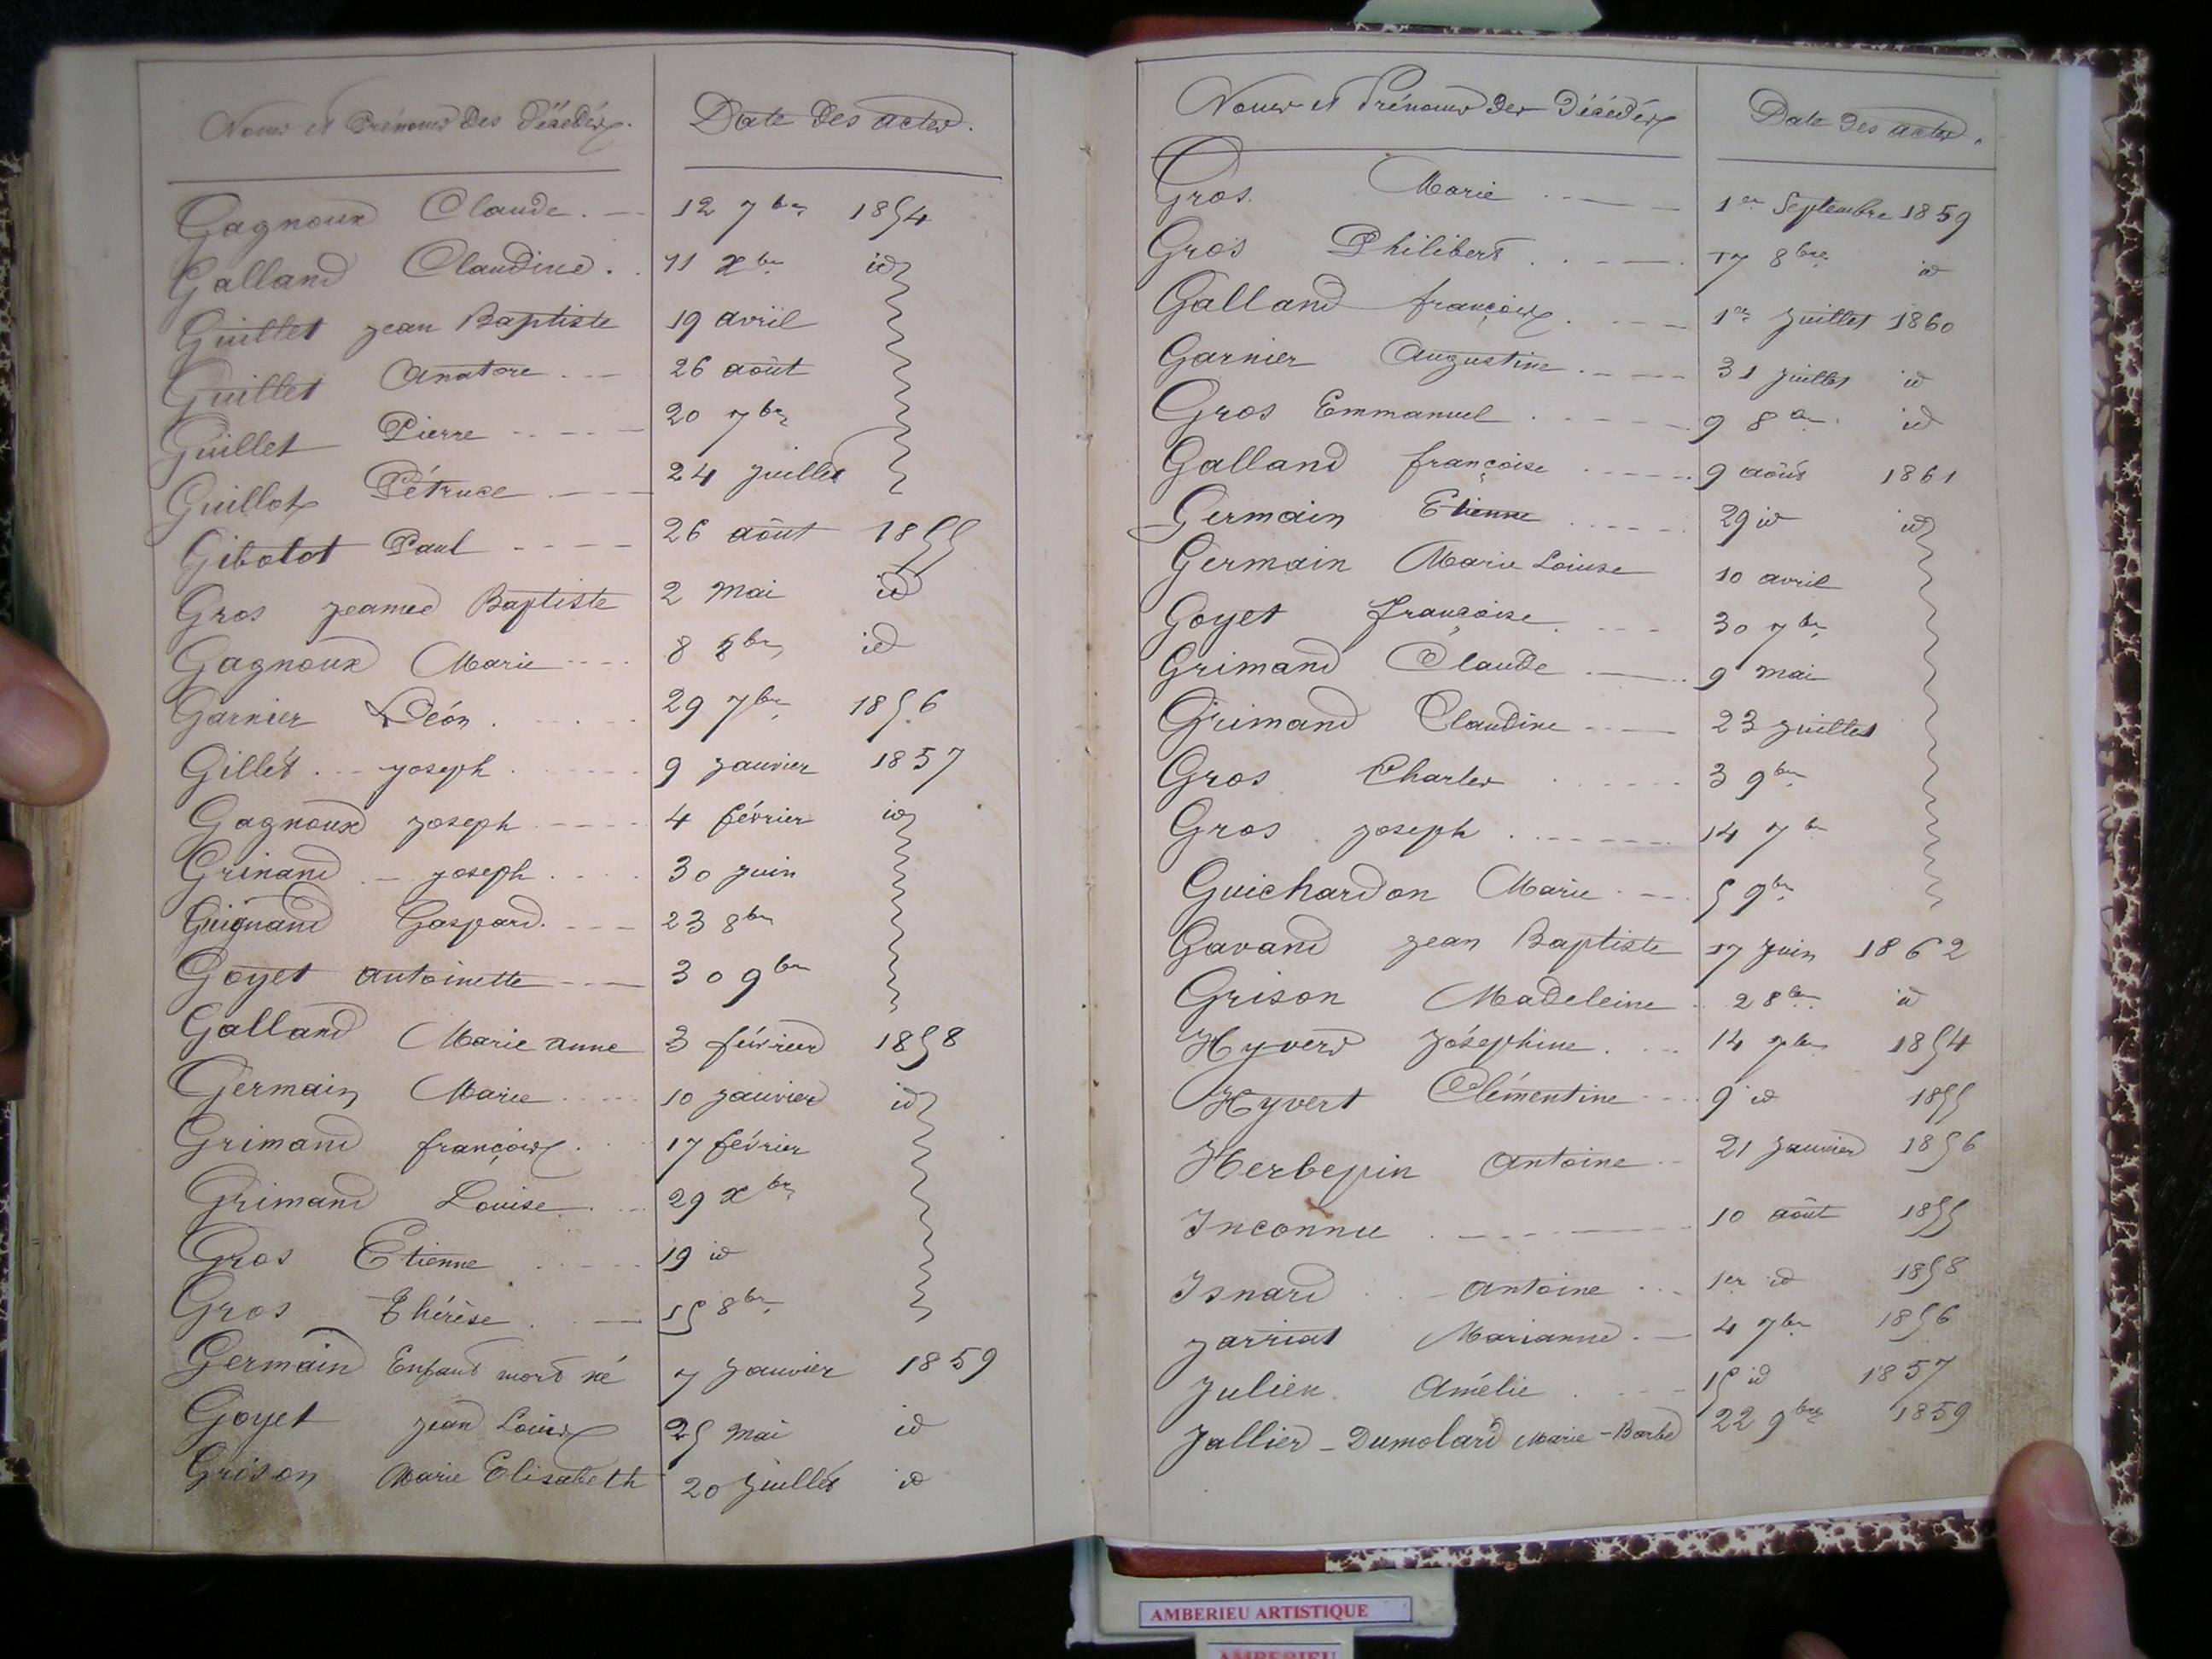 Noms et Prénoms des Décédés. Date des actes.
Gagnoux Claude. 12 7bre 1854
Galland Claudine. 11 xbre id
Guillet jean Baptiste 19 avril
Guillet Anatore 26 août
Guillet Pierre 20 7bre
Guillot Pétruse 24 juillet
Gibolot Paul 26 août 1855
Gros jeanne Baptiste 2 Mai id
Gagnoux Marie 8 xbre id
Garnier Léon. 29 7bre 1856
Gillet joseph 9 janvier 1857
Gagnoux joseph 4 février id
Grinand joseph 30 juin
Guignand Gaspard. 23 8bre
Goyet antoinette 30 9bre
Galland Marie anne 3 février 1858
Germain Marie 10 janvier id
Grimand françois 17 février
Grimand Louise 29 xbre
Gros Etienne 19 id
Gros Thérèse 15 8bre
Germain Enfant mort né 7 janvier 1859
Goyet jean Louis 25 mai id
Grison Marie Elisabeth 20 juillet id
Noms et Prénoms des Décédés Date des actes.
Gros. Marie 1er Septembre 1859
Gros Philibert 17 8bre id
Galland françois 1er juillet 1860
Garnier Augustine 31 juillet id
Gros Emmanuel 9 8bre id
Galland françoise 9 août 1861
Germain Etienne 29 id id
Germain Marie Louise 10 avril
Goyet françoise 30 7bre
Grimand Claude 9 mai
Grimand Claudine 23 juillet
Gros Charles 3 9bre
Gros joseph 14 7bre
Guichardon Marie 5 9bre
Gavand jean Baptiste 17 juin 1862
Grison Madeleine 2 8bre id
Hyverd Joséphine 14 7bre 1854
Hyvert Clémentine 9 id 1855
Herbepin Antoine 21 janvier 1856
Inconnu 10 août 1855
Isnard antoine 1er id 1858
jarriat Marianne 4 7bre 1856
Julien Amélie 15 id 1857
Jallier - Dumolard Marie - Barbe 22 9bre 1859
AMBERIEU ARTISTIQUE
AMBERIEU